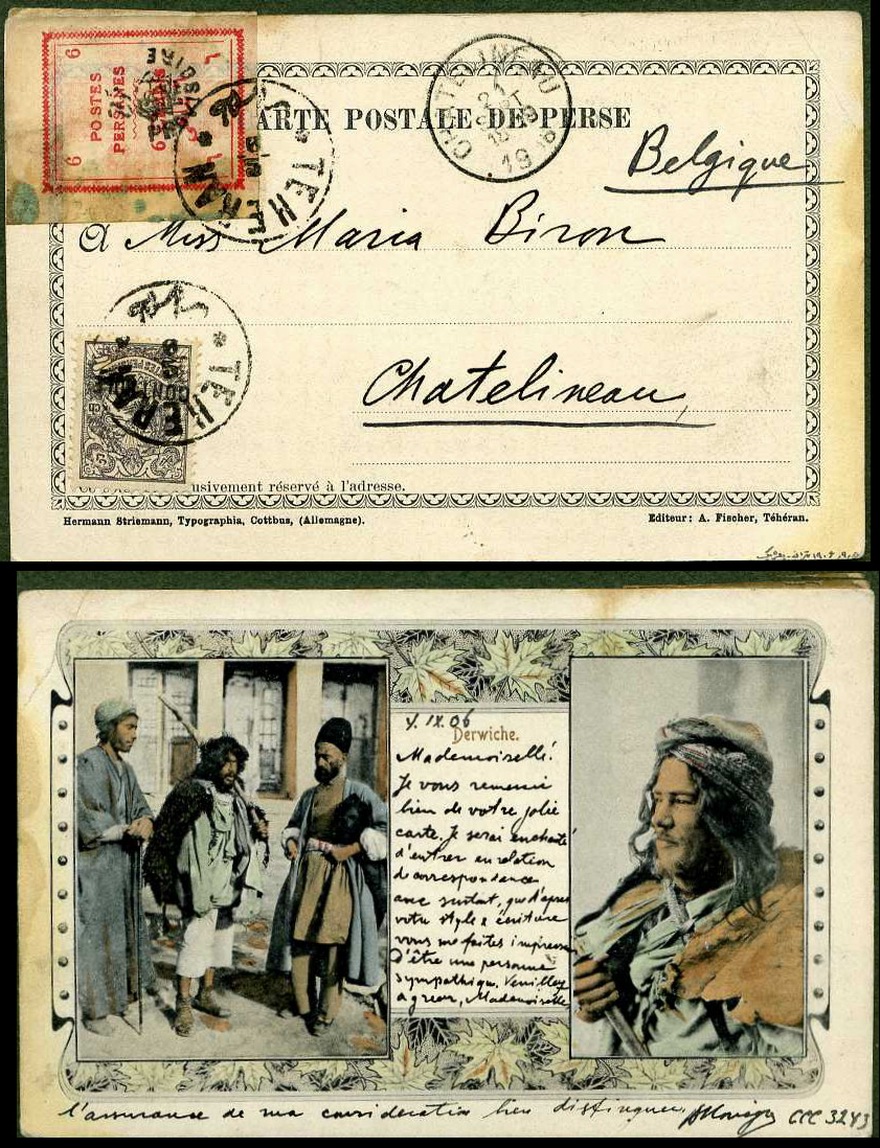 6 6
POSTES
PERSANES
TEHERAN
CARTE POSTALE DE PERSE
CHATELINEAU
Belgique
À Miss Maria Biron
TEHERAN
Chatelineau,
usivement réservé à l'adresse.
Hermann Striemann, Typographia, Cottbus, (Allemagne).
Editeur: A. Fischer, Téhéran.
4.IX.06
Derwiche.
Mademoiselle!
Je vous remercie
bien de votre jolie
carte. Je serai enchanté
d'entrer en relation
de correspondance
avec surtout, que d'après
votre style & écriture
vous me faites impression
d'être une personne
sympathique. Veuillez
agréer, Mademoiselle
l'assurance de ma consideration bien distinguée
CCC 3243